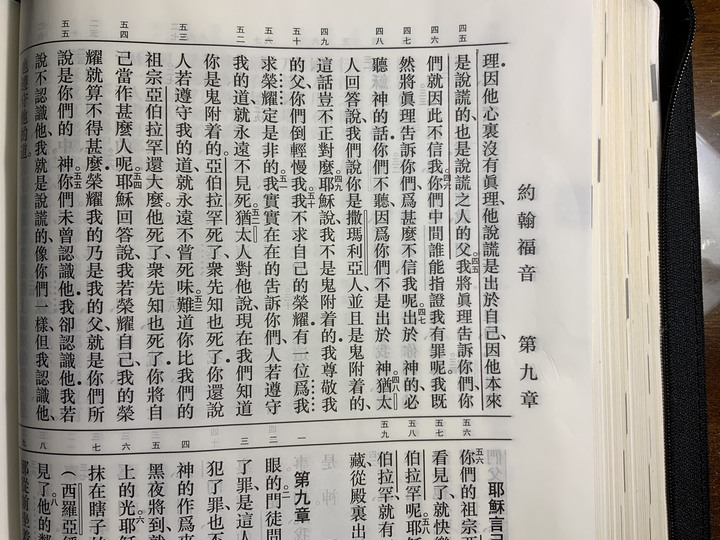 約翰福音 第九章
理．因他心裏沒有真理、他說謊是出於自己、因他本來
四五
是說謊的、也是說謊之人的父。我將真理告訴你們、你
四六
們就因此不信我。你們中間誰能指證我有罪呢。我既
四七
然將眞理告訴你們、爲甚麼不信我呢。出於 神的必
四八
聽 神的話．你們不聽、因爲你們不是出於 神。猶太
人回答說、我們說你是撒瑪利亞人、並且是鬼附着的、
四九
這話豈不正對麼。耶穌說、我不是鬼附着的．我尊敬我
五十
的父、你們倒輕慢我。我不求自己的榮耀．有一位爲我
五一
求榮耀定是非的。我實實在在的告訴你們、人若遵守
五二
我的道、就永遠不見死。猶太人對他說、現在我們知道
你是鬼附着的．亞伯拉罕死了、衆先知也死了．你還說
五三
人若遵守我的道、就永遠不嘗死味。難道你比我們的
祖宗亞伯拉罕還大麼．他死了、衆先知也死了．你將自
五四
己當作甚麼人呢。耶穌回答說、我若榮耀自己、我的榮
耀就算不得甚麼．榮耀我的乃是我的父、就是你們所
五五
說是你們的 神。你們未曾認識他．我卻認識他．我若
說不認識他、我就是說謊的、像你們一樣、但我認識他、
五六
你們的祖宗
五七
看見了、就快
五八
伯拉罕呢。耶
五九
伯拉罕、就有
藏、從殿裏出
第九章
一
耶穌
二
眼的。門徒問
三
了罪．是這人
犯了罪、也不
四
神的作爲來
黑夜將到、就
五
上的光。耶
六
抹在瞎子的
七
（西羅亞
八
見了。他的鄰